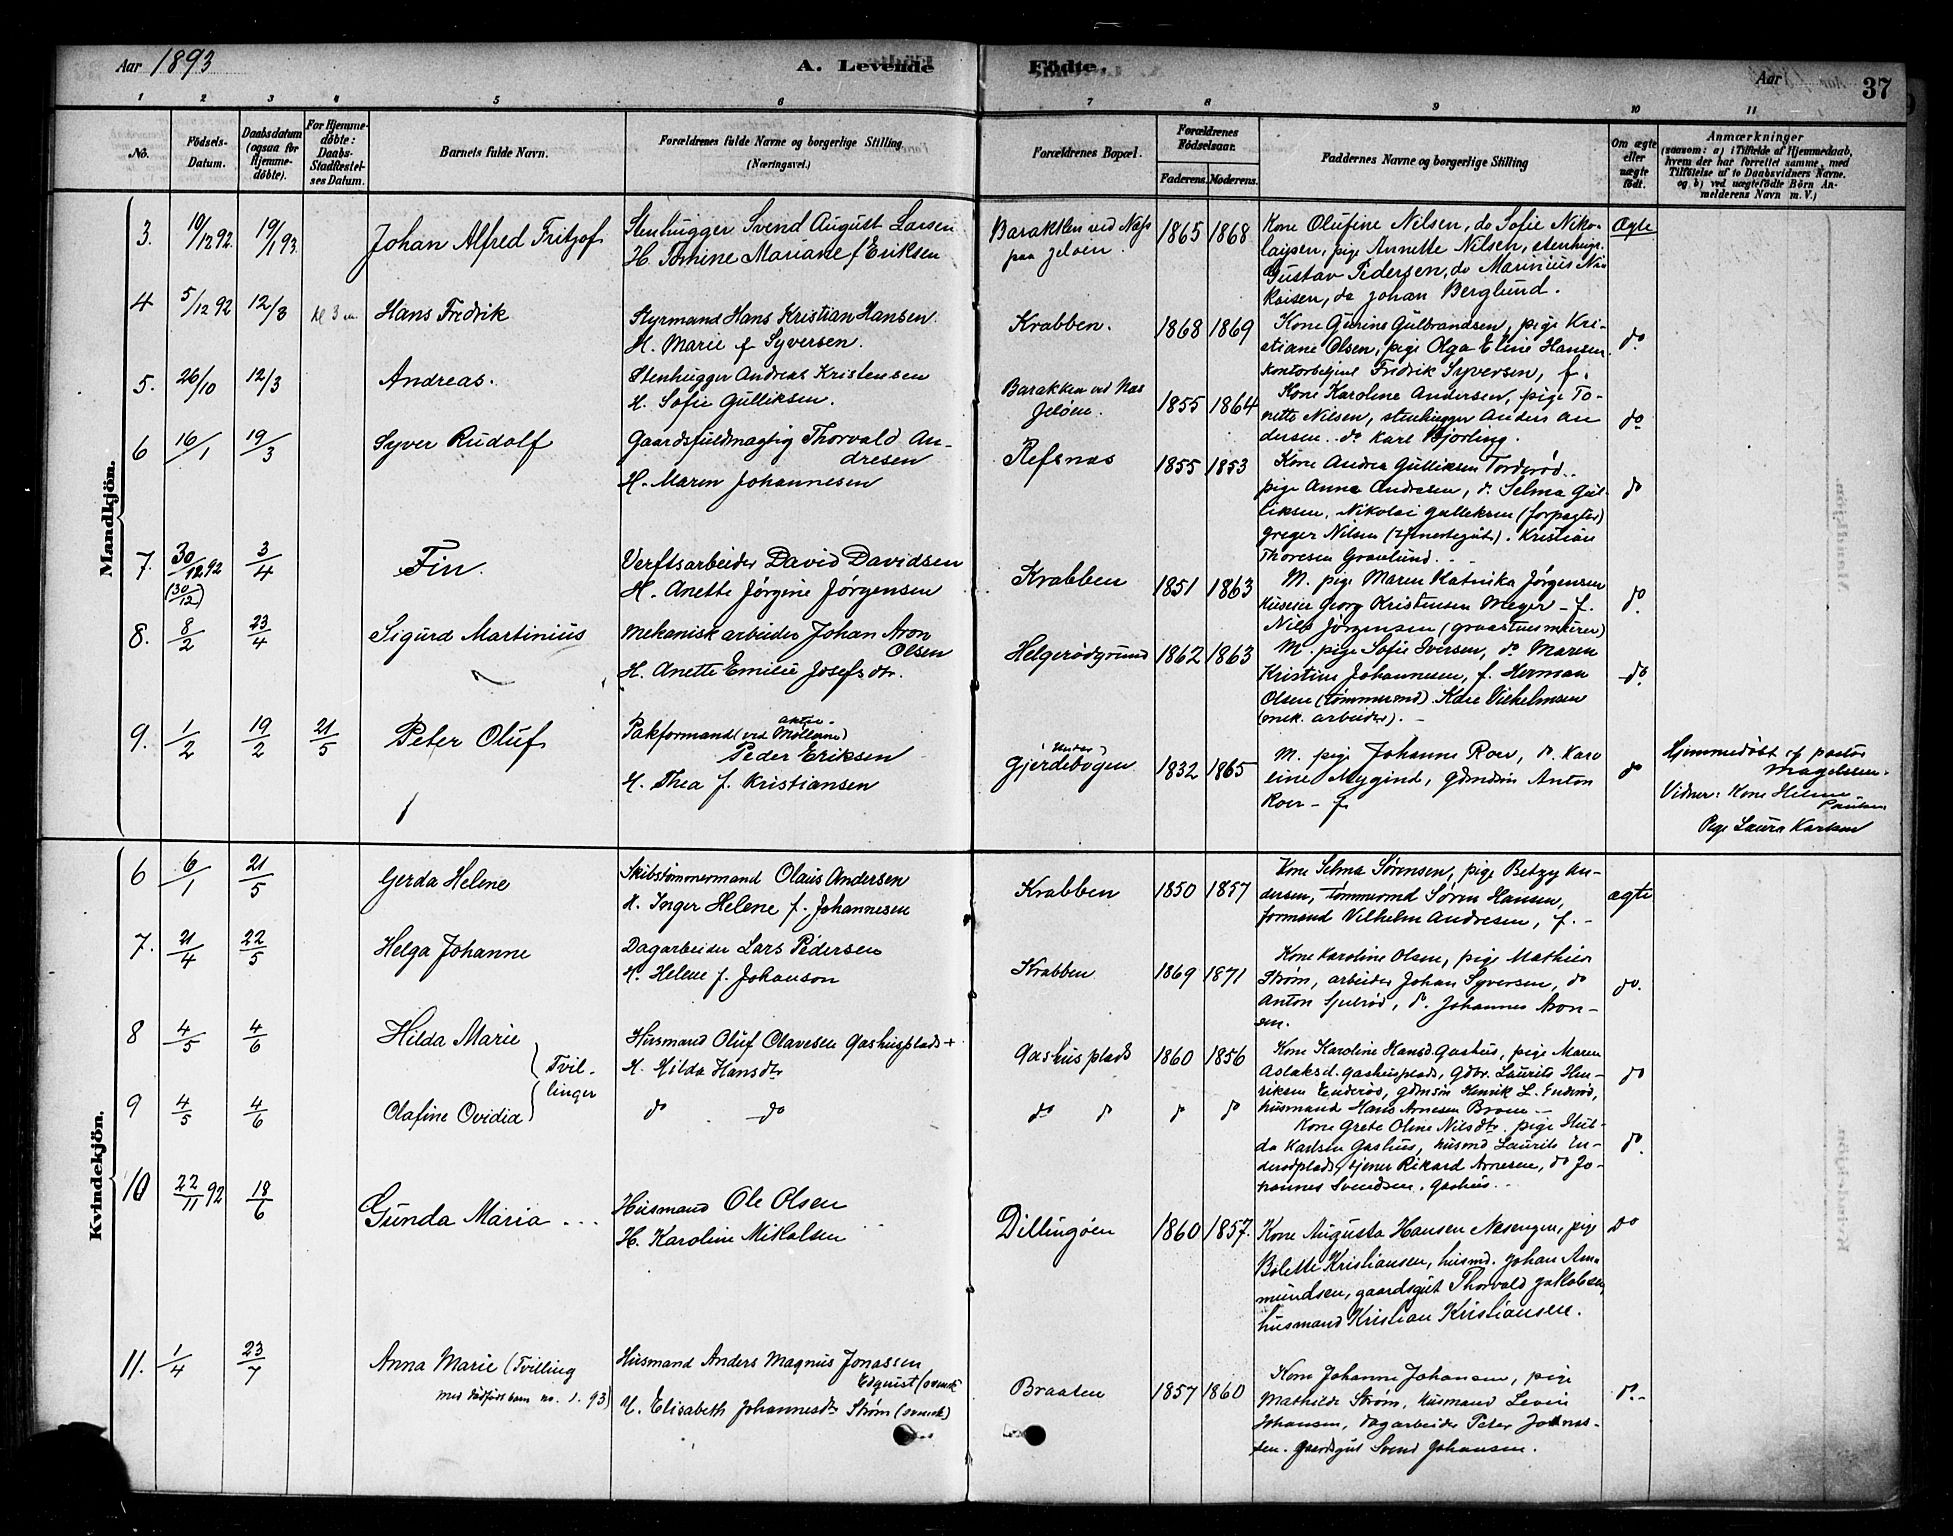 Aar 1893
A. Levende Födte.
Aar
37
1 2 3 4 5 6 7 8 9 10 11
No.
Födsels-Datum.
Daabsdatum (ogsaa for Hjemme-döbte).
For Hjemme-döbte: Daabs-Stadfæstel-ses Datum.
Barnets fulde Navn.
Forældrenes fulde Navne og borgerlige Stilling. (Næringsvei.)
Forældrenes Bopæl.
Forældrenes Födselsaar.
Faderens. Moderens.
Faddernes Navne og borgerlige Stilling
Om ægte eller uægte födt.
Anmærkninger
(saasom: a) i Tilfælde af Hjemmedaab, hvem der har forrettet samme, med Tilföielse af to Daabsvidners Navne. og b) ved uægtefödte Börn An-melderens Navn m. V.)
Mandkjön.
3. 19/12 92. 19/1 93. Johan Alfred Fritjof
Stenhugger Svend August Larsen
H. Tomine Mariane f Eriksen
Barakken ved Næss paa Jeløen
1865 1868
Kone Olufine Nilsen, do Sofie Niko-
laysen, pige Annette Nilsen, stenhugr.
Gustav Pedersen, do Marinius
do Johan Berglund.
Ægte
4 5/12 92 12/3 Hans Fredrik
Styrmand Hans Kristian Hansen.
H. Marie f Syversen.
Krabben.
1868 1869
Kone Gurine Gulbrandsen, pige Kri-
stiane Olsen, pige Olga Eline Hansen.
Fredrik Syversen, f.
do
5. 26/10 12/3 Andreas.
Stenhugger Andreas Kristensen
H. Sofie Gulliksen.
Barakken ved Næs Jeløen.
1855 1864
Kone Karoline Andersen, pige To-
nette Nilsen, stenhugger Anders An
dersen. do Karl Bjorling.
do
6 16/1 19/3 Syver Rudolf
Gaardsfuldmægtig Thorvald An-
dresen
H. Maren Johannesen
Refsnæs
1855 1853
Kone Andrea Gulliksen Torderød.
pige Anna Andresen, d. Selma Gul-
liksen, Nikolai Gulleksen (forpagter)
Greger Nilsen. Kristian
Thoresen Granlund.
do
7. 30/12 92 (30/12) 3/4 Fin.
Verftsarbeider David Davidsen
H. Anette Jørgine Jørgensen
Krabben
1851 1863
M. pige Maren Katinka Jørgensen
Huseier Georg Kristensen Meyer - f.
Nils Jørgensen (graastensmurer)
do
8. 8/2 23/4 Sigurd Martinius
Mekanisk arbeider Johan Aron
Olsen
H. Anette Emilie Josefsdtr.
Helgerødgrund
1862 1863
M. pige Sofie Iversen, do Maren
Kristine Johannesen, f. Herman
Olsen (tømmermd) Kare Vilhelmsen
(mek. arbeider).
do.
9. 1/2 19/2 21/5 Peter Oluf
Pakformand (ved aktie-Møllerne)
Peder Eriksen
H. Thea f. Kristiansen
(under) Gjerdebogen
1832 1865
M. pige Johanne Roer, d. Karo
line Mygind, Gdmdsøn Anton
Roer - f.
do
Hjemmedöbt af pastor
Magelssen.
Vidner: Kone Helene
Paulsen
Pige Laura Karlsen
Kvindekjön.
6 6/1 21/5 Gerda Helene
Skibstömmermand Olaus Andersen
H. Inger Helene f. Johannesen
Krabben
1850 1857
Kone Selma Sørensen, pige Betzy An-
dersen, tømmermd Søren Hansen,
formand Vilhelm Andresen, f.
ægte
7. 21/4 22/5 Helga Johanne
Dagarbeider Lars Pedersen
H. Helene f. Johanson
Krabben
1869 1871
Kone Karoline Olsen, pige Mathilde
Strøm, arbeider Johan Syversen, do
Anton, d. Johannes Aron-
sen.
do.
8 4/5 4/6 Hilda Marie
Husmand Oluf Olavesen Gashusplads +
H. Hilda Hansdtr
Gashusplads
1860 1856
Kone Karoline Hansd. Gashus, pige Maren
Aslaksd. Gashusplads, Gdbr. Laurits Hen-
riksen Enderød, gdmsøn Henrik L. Enderød,
husmand Hans Arnesen Broen
do
Tvil-
linger
9 4/5 4/6 Olafine Ovidia
do do
do do do do
Kone Grete Oline Nilsdtr. pige Hul-
da Karlsen Gashus, husmd Laurits En-
derødplads, tjener Rikard Arnesen, do Jo-
hannes Svendsen. Gashus.
do.
10 22/11 92 18/6 Gunda Maria
Husmand Ole Olsen
H. Karoline Mikalsen
Dillingøen
1860 1857.
Kone Augusta Hansen Næsengen, pige
Bolette Kristiansen, husmd. Johan Am-
mundsen, gaardsgut Thorvald Jakobsen,
husmand Kristian Kristiansen.
Do
11. 1/4 23/7 Anna Marie (Tvilling
med dødfødt barn no. 1. 93)
Husmand Anders Magnus Jonassen
Edquist (svensk)
H. Elisabeth Johannesdtr Strøm (svensk)
Braaten
1857 1860
Kone Johanne Johansen, pige
Mathilde Strøm, Husmand Levin
Johansen, dagarbeider Peter Jonas-
sen. Gaardsgut Svend Johansen.
do.